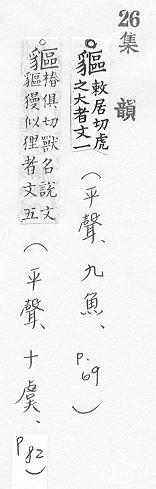 26集韻
貙敕居切虎之大者文一(平聲、九魚、p.69)
貙椿俱切獸名說文貙獌似狸者文五(平聲、十虞、p82)